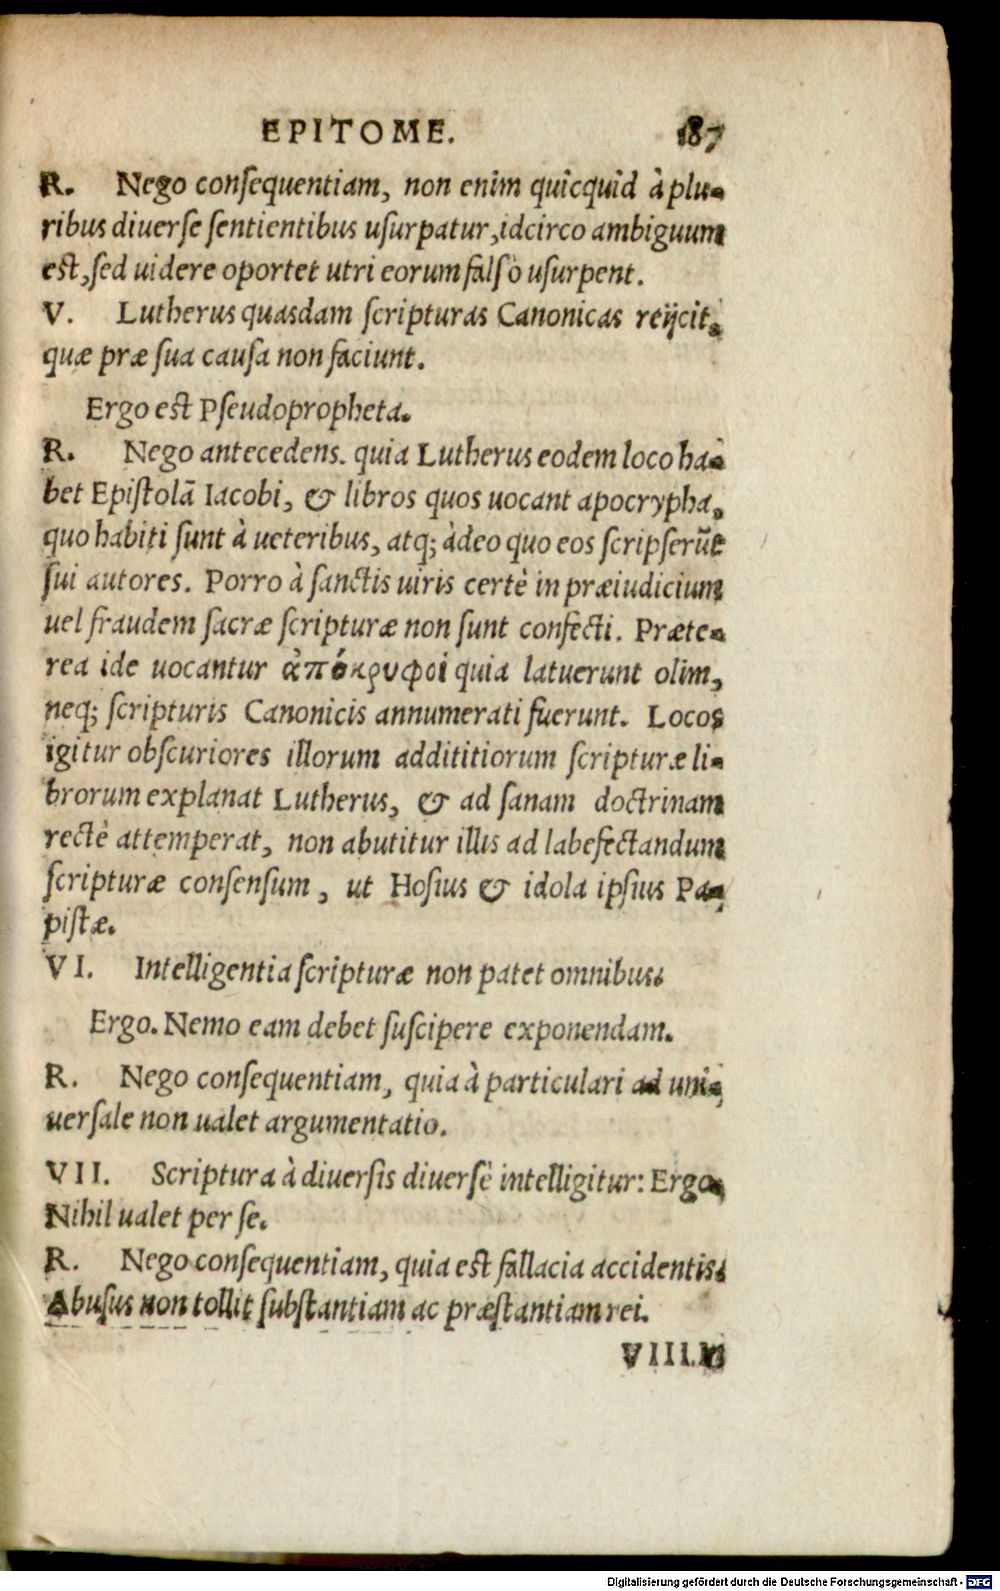 EPITOME. 187
R. Nego conſequentiam, non enim quicquid à plu-
ribus diuerſe ſentientibus uſurpatur, idcirco ambiguum
est, ſed uidere oportet utri eorum falſò uſurpent.
V. Lutherus quasdam ſcripturas Canonicas reijcit,
quæ præ ſua cauſa non faciunt.
Ergo est Pſeudopropheta.
R. Nego antecedens. quia Lutherus eodem loco ha-
bet Epiſtolã Iacobi, & libros quos uocant apocrypha,
quo habiti ſunt à ueteribus, atq; àdeo quo eos ſcripſerũt
ſui autores. Porro à ſanctis uiris certè in præiudicium
uel fraudem ſacræ ſcripturæ non ſunt confecti. Præte-
rea ide uocantur ἀπόκρυφοι quia latuerunt olim,
neq; ſcripturis Canonicis annumerati fuerunt. Locos
igitur obſcuriores illorum addititiorum ſcripturæ li-
brorum explanat Lutherus, & ad ſanam doctrinam
rectè attemperat, non abutitur illis ad labefectandum
ſcripturæ conſenſum, ut Hoſius & idola ipſius Pa-
piſtæ.
VI. Intelligentia ſcripturæ non patet omnibus:
Ergo. Nemo eam debet ſuſcipere exponendam.
R. Nego conſequentiam, quia à particulari ad uni-
uerſale non ualet argumentatio.
VII. Scriptura à diuerſis diuerſè intelligitur: Ergo,
Nihil ualet per ſe.
R. Nego conſequentiam, quia est fallacia accidentis:
Abuſus non tollit ſubſtantiam ac præſtantiam rei.
VIII.
Digitalisierung gefördert durch die Deutsche Forschungsgemeinschaft - DFG